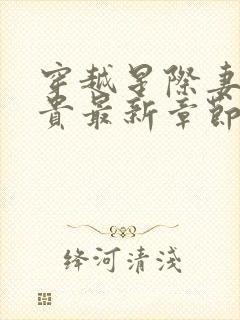 穿越星際妻
貴最新章節
绛河清淺